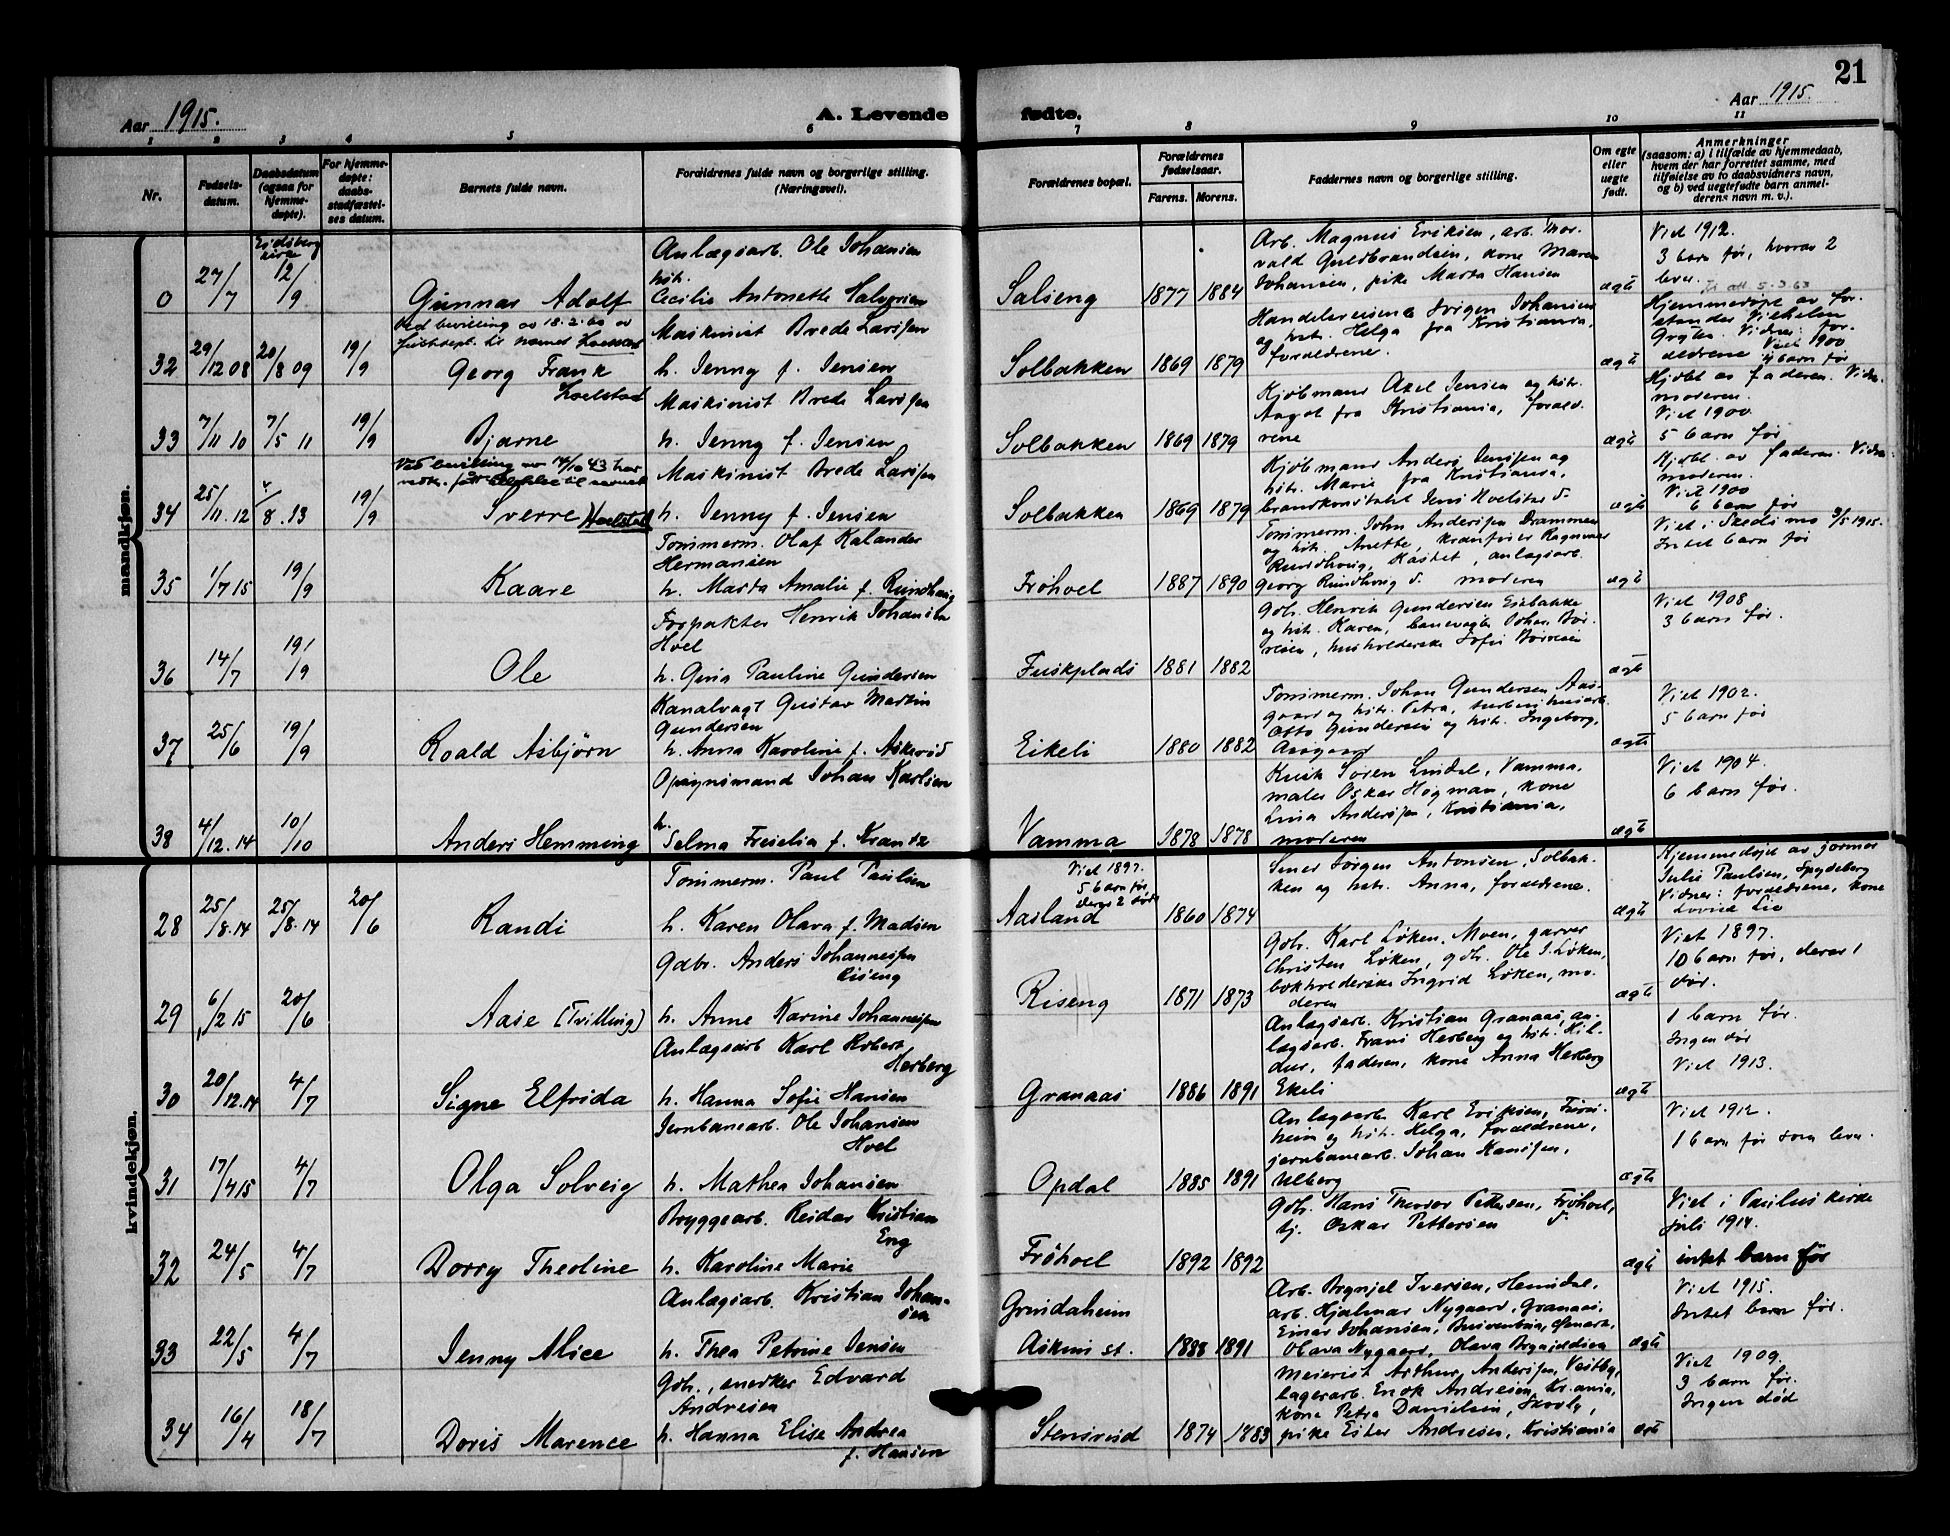 21
Aar 1915.
A. Levende
fødte.
Aar 1915.
1 2 3 4 5 6 7 8 9 10 11
Nr.
Fødsels-
datum.
Daabsdatum
(ogsaa for
hjemme-
døpte).
For hjemme-
døpte:
daabs-
stadfæstel-
ses datum.
Barnets fulde navn.
Forældrenes fulde navn og borgerlige stilling.
(Næringsvei).
Forældrenes bopæl.
Forældrenes
fødselsaar.
Farens. Morens.
Faddernes navn og borgerlige stilling.
Om egte
eller
uegte
født.
Anmerkninger
(saasom: a) i tilfælde av hjemmedaab,
hvem der har forrettet samme, med
tilføielse av to daabsvidners navn,
og b) ved uegtefødte barn anmel-
derens navn m. v.).
mandkjøn.
0
27/7
Eidsberg
kirke
12/9
Gunnar Adolf
Anlægsarb. Ole Johansen
hst.
Cecilie Antonette Halvorsen
Salseng
1877 1884
Arb. Magnus Eriksen, arb. Thor-
vald Guldbrandsen, kone Maren
Johansen, pike Marta Hansen
ægte
Viet 1912.
3 barn før, hvorav 2
lever.
32
29/12 08
20/8 09
19/9
Ved bevilling av 18.2.60 av
til navnet Hoelstad
Georg Frank
Hoelstad
Maskinist Brede Larsen
h. Jenny f. Jensen
Solbakken
1869 1879
Handelsreisende Jørgen Johansen
og hst. Helga fra Kristiania,
forældrene.
ægte
5.3.63
Hjemmedøpt av for-
stander Vilhelm
Vidner: for-
ældrene Viet 1900
4 barn før
33
7/11 10
7/5 11
19/9
Bjarne
Maskinist Brede Larsen
h. Jenny f. Jensen
Solbakken
1869 1879
Kjøbmand Axel Jensen og hst.
Aagot fra Kristiania, foræld-
rene
ægte
Hjdøbt av faderen. Vidn.
moderen.
Viet 1900
5 barn før
34
25/11.12
/8.13
19/9
Ved bevilling av 14/10 43 har
til navnet
Sverre Hoelstad
Maskinist Brede Larsen
h. Jenny f. Jensen
Solbakken
1869 1879
Kjøbmand Anders Jensen og
hst. Marie fra Kristiania,
brandkonstabel Jens Hoelstad
ægte
Hjdøbt. av faderen. Vidn.
moderen.
Viet 1900
6 barn før
35
1/7 15
19/9
Kaare
Tømmerm. Olaf Kalander
Hermansen
h. Marta Amalie f. Rundhaug
Frøhvel
1887 1890
Tømmerm. John Andersen Drammen
og hst. Anette, kranfører Ragnvald
Rundhaug, Kastet, anlægsarb.
Georg Rundhaug moderen
ægte
Viet i Skedsmo 9/5 1915.
Intet barn før
36
14/7
19/9
Ole
Forpakter Henrik Johansen
Hoel
h. Gina Pauline Gundersen
Fuskplads
1881 1882
Gdb. Henrik Gundersen Esebakke
og hst. Karen, banevagt Johan Bør-
resen, husholderske Sofie Børresen
ægte
Viet 1908
3 barn før.
37
25/6
19/9
Roald Asbjørn
Kanalvagt Gustav Martin
Gundersen
h. Anna Karoline f. Askerød
Eikeli
1880 1882
Tømmerm. Johan Gundersen, Aas-
gaard og hst. Petra,
Otto Gundersen og hst. Ingeborg,
Aasgaard
ægte
Viet 1902.
5 barn før
38
4/12.14
10/10
Anders Hemming
Opsynsmand Johan Karlsen
h.
Selma Freselia f. Krantz
Vamma
1878 1878
Kusk Søren Lindal, Vamma,
maler Oskar Høgman, kone
Lina Andersen, Kristiania,
moderen
ægte
Viet 1904.
6 barn før.
kvindekjøn.
28
25/8.14
25/8.14
20/6
Randi
Tømmerm. Paul Paulsen
h. Karen Olava f. Madsen
Viet 1897.
5 barn før
derav 2 døde
Aasland
1860 1874
Smed Jørgen Antonsen, Solbak-
ken og hst. Anna, forældrene.
ægte
Hjemmedøpt av jormor
Julie Paulsen, Spydeberg
Vidner: forældrene, kone
Lovise Lie
29
6/2 15
20/6
Aase (Tvilling)
Gdbr. Anders Johannessen
Riseng
h. Anne Karine Johannessen
Riseng
1871 1873
Gdb. Karl Løken, Moen, garver
Christen Løken, gdb. Ole J. Løken,
bokholderske Ingrid Løken, mo-
deren
ægte
Viet 1897.
10 barn før, derav 1
død.
30
20/12.14
4/7
Signe Elfrida
Anlægsarb Karl Robert
Herberg
h. Hanna Sofie Hansen
Granaas
1886 1891
Anlægsarb. Kristian Granaas, an-
lægsarb. Frans Herberg og hst. Hil-
dur, faderen, kone Anna Herberg
Ekeli
ægte
1 barn før.
Ingen død
Viet 1913.
31
17/4 15
4/7
Olga Solveig
Jernbanearb. Ole Johansen
Hoel
h. Mathea Johansen
Opdal
1885 1891
Anlægsarb. Karl Eriksen,
heim og hst. Helga, forældrene,
jernbanearb. Johan Hansen,
Ulberg
ægte
Viet 1912.
1 barn før som lever.
32
24/5
4/7
Dorry Theoline
Bryggearb. Reidar Kristian
Eng
h. Karoline Marie
Frøhvel
1892 1892
Gdb. Hans Theodor Pettersen, Frøhvel,
tj. Oskar Pettersen
ægte
Viet i Paulus kirke
juli 1914.
intet barn før
33
22/5
4/7
Jenny Alice
Anlægsarb. Kristian Johan-
sen
h. Thea Petrine Jensen
Grindaheim
Askims st.
1888 1891
Arb. Brynjel Iversen, Hemdal,
arb. Hjalmar Nygaard, Granaas,
Einar Johansen,
Olava Nygaard, Olava
ægte
Viet 1915.
Intet barn før.
34
16/4
18/7
Doris Marence
Gdb., snedker Edvard
Andresen
h. Hanna Elise Andrea
f. Hansen
Stensrud
1874 1883
Meierist Arthur Andersen, Vestby,
lagerarb. Enok Andresen, Kr.ania,
kone Petra Danielsen, Skovly,
pike Ester Andresen, Kristiania
ægte
Viet 1909.
3 barn før.
Ingen død